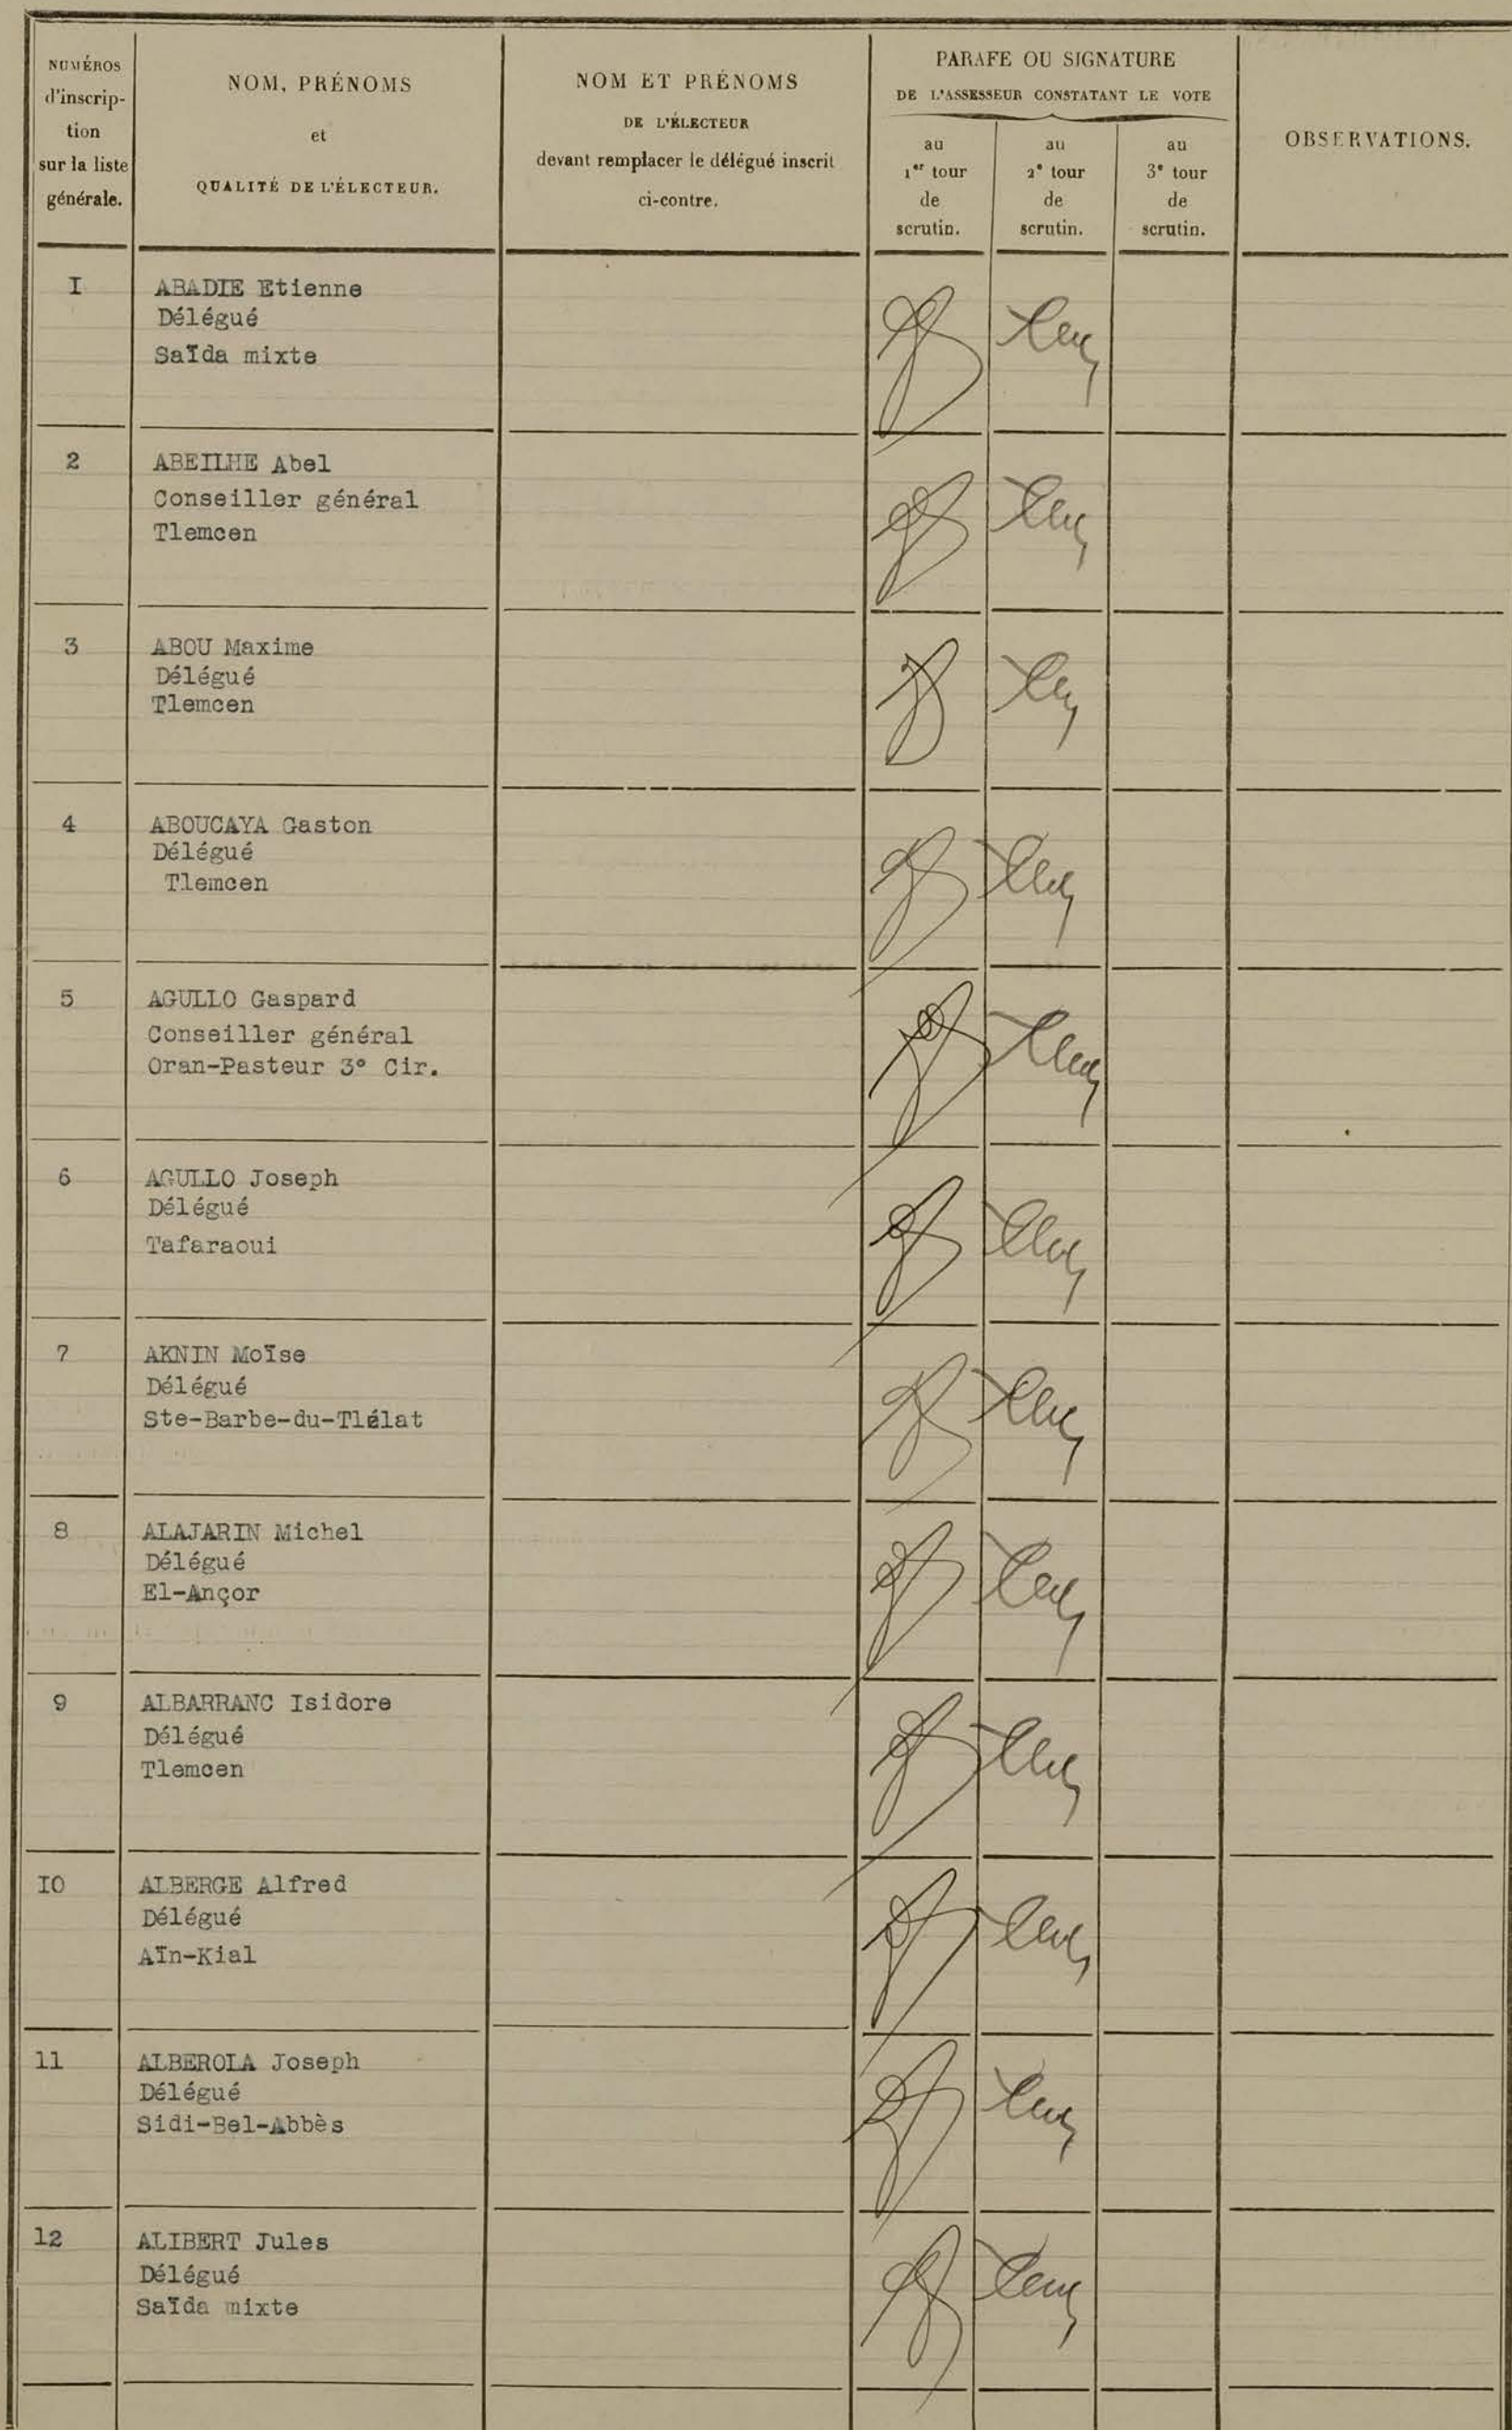 NUMÉROS
d'inscrip-
tion
sur la liste
générale.
NOM, PRÉNOMS
et
QUALITÉ DE L'ÉLECTEUR.
NOM ET PRÉNOMS
DE L'ÉLECTEUR
devant remplacer le délégué inscrit
ci-contre.
PARAFE OU SIGNATURE
DE L'ASSESSEUR CONSTATANT LE VOTE
au
1er tour
de
scrutin.
au
2e tour
de
scrutin.
au
3e tour
de
scrutin.
OBSERVATIONS.
I
ABADIE Etienne
Délégué
Saïda mixte
2
ABEILHE Abel
Conseiller général
Tlemcen
3
ABOU Maxime
Délégué
Tlemcen
4
ABOUCAYA Gaston
Délégué
Tlemcen
5
AGULLO Gaspard
Conseiller général
Oran-Pasteur 3° Cir.
6
AGULLO Joseph
Délégué
Tafaraoui
7
AKNIN Moïse
Délégué
Ste-Barbe-du-Tlélat
8
ALAJARIN Michel
Délégué
El-Ançor
9
ALBARRANC Isidore
Délégué
Tlemcen
IO
ALBERGE Alfred
Délégué
Aïn-Kial
11
ALBEROLA Joseph
Délégué
Sidi-Bel-Abbès
12
ALIBERT Jules
Délégué
Saïda mixte